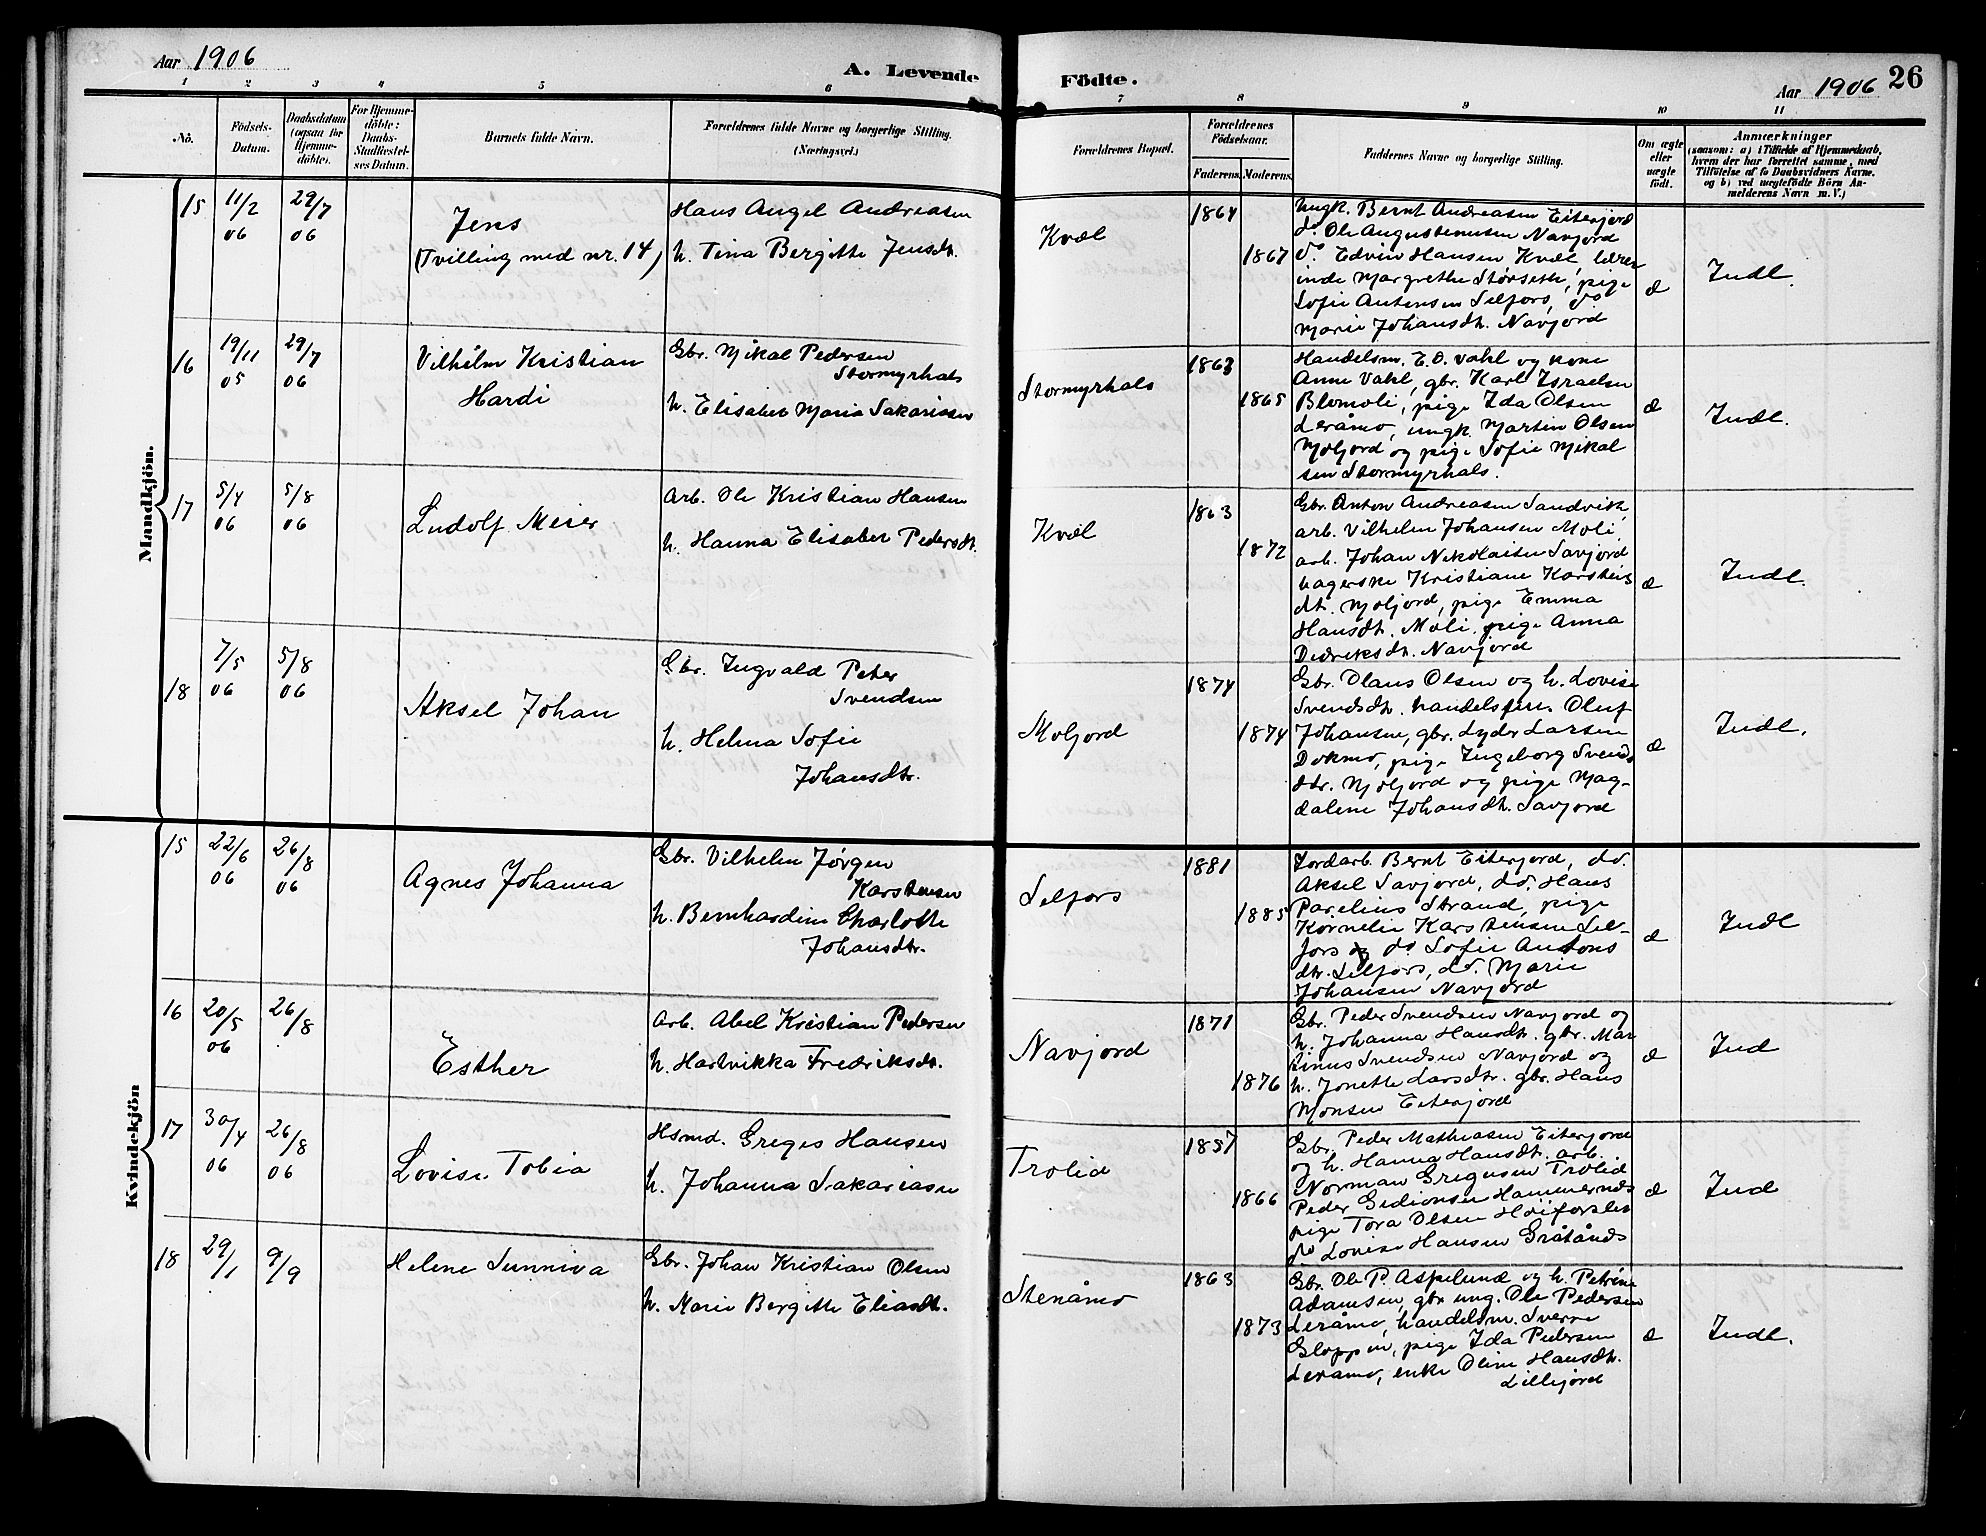 Aar 1906
A. Levende Födte.
Aar 1906 26
1 2 3 4 5 6 7 8 9 10 11
No.
Födsels-Datum.
Daabsdatum (ogsaa for Hjemmedöbte).
For Hjemmedöbte: Daabs-Stadfæstelses Datum.
Barnets fulde Navn.
Forældrenes fulde Navne og borgerlige Stilling. (Næringsvei.)
Forældrenes Bopæl.
Forældrenes Födselsaar.
Faderens. Moderens.
Faddernes Navne og borgerlige Stilling.
Om ægte eller uægte födt.
Anmærkninger
(saasom: a) i Tilfælde af Hjemmedaab, hvem der har forrettet samme, med Tilföielse af to Daabsvidners Navne, og b) ved uægtefödte Börn Anmelderens Navn m. V.)
Mandkjön.
15 11/2 06 29/7 06
Jens
(Tvilling med nr. 14)
Hans Angel Andreasen
h. Tina Bergitte Jensdt.
Kvæl
1864
1867
Ungk. Bernt Andreasen Eiterjord
do Ole Augustinusen Navjord
do. Edvin Hansen Kvæl lærer
inde Margrethe Størseth, pige
Sofie Antonsen Selfors, do
Marie Johansdt. Navjord
æ
Indl.
16 19/11 05 29/7 06
Vilhelm Kristian
Hardi
Gbr. Mikal Pedersen
Stormyrhals
h. Elisabet Maria Sakariasen
Stormyrhals
1863
1865
Handelsm. E. D. Vahl og kone
Anne Vahl, gbr. Karl Israelsen
Blomoli, pige Ida Olsen
Leråmo, ungk. Martin Olsen
Moljord og pige Sofie Mikal
sen Stormyrhals.
æ
Indl.
17 5/4 06 5/8 06
Ludolf Meier
Arb. Ole Kristian Hansen
h. Hanna Elisabet Pedersdt.
Kvæl
1863
1872
Gbr. Anton Andreasen Sandvik,
arb. Vilhelm Johansen Moli,
arb. Johan Nikolaisen Savjord
Kristiane Karstens
dt. Moljord, pige Emma
Hansdt. Moli, pige Anna
Dedriksdt. Navjord
æ
Indl.
18 7/5 06 5/8 06
Aksel Johan
Gbr. Ingvald Peter
Svendsen
h. Helma Sofie
Johansdtr.
Moljord
1874
1874
Gbr. Olaus Olsen og h. Lovise
Svendsdt. handelsfm. Oluf
Johansen, gbr. Lyder Larsen
Dokmo, pige Ingeborg Svends
dtr. Moljord og pige Mag-
dalene Johansdt. Savjord
æ
Indl.
Kvindekjön
15 22/6 06 26/8 06
Agnes Johanna
Gbr. Vilhelm Jørgen
Karstensen
h. Bernhardine Charlotte
Johansdtr.
Selfors
1881
1885
Jordarb. Bernt Eiterjord, do.
Aksel Savjord, do. Hans
Parelius Strand, pige
Kornelie Karstensen Sel-
fors og do Sofie Antons
dtr. Selfors, do. Marie
Johansen Navjord
æ
Indl
16 20/5 06 26/8
Esther
Arb. Abel Kristian Pedersen
h. Hartvikka Fredriksdt.
Navjord
1871
1876
Gbr. Peder Svendsen Navjord og
h. Johanna Hansdt. gbr. Mar
tinus Svendsen Navjord og
h. Jonette Larsdtr. gbr. Hans
Monsen Eiterjord
æ
Ind
17 30/4 06 26/8 06
Lovise Tobia
Hsmd. Greges Hansen
h. Johanna Sakariasen
Trolid
1857
1866
Gbr. Peder Mathiasen Eiterjord
og h. Hanna Hansdt. arb.
Norman Gregusen Trolid
Peder Gedionsen Hammernes
pige Tora Olsen Høiforslen
do Lovise Hansen Gråtånds
æ
Ind
18 29/1 9/9
Helene Sunniva
Gbr. Johan Kristian Olsen
h. Marie Bergitte Eliasdt.
Stenåmo
1863
1873
Gbr. Ole P. Aspelund og h. Petrine
Adamsen, gbr ung. Ole Pedersen
Leråmo, handelsm. Sverre
Gloppen, pige Ida Pedersen
Leråmo, enke Oline Hansdt.
Lillejord
æ
Indl.